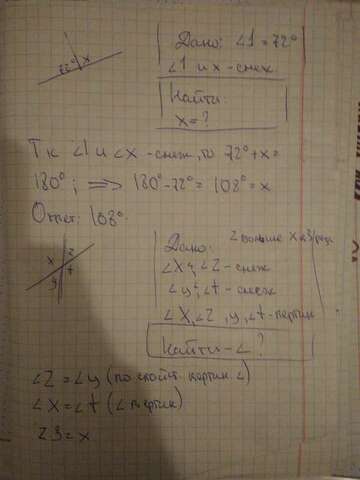 72° x
Дано: ∠1 = 72°
∠1 и x - смеж.
Найти:
x = ?
Тк ∠1 и ∠x - смеж, то 72° + x =
180°; ⟹ 180° - 72° = 108° = x
Ответ: 108°.
x z
y t
Дано: Z больше X в 3 раза
∠X и ∠Z - смеж
∠y и ∠t - смеж
∠X, ∠Z, y, ∠t - вертик
Найти - ∠ ?
∠Z = ∠y (по свойст. вертик ∠)
∠X = ∠t (∠ вертик)
Z3 = x